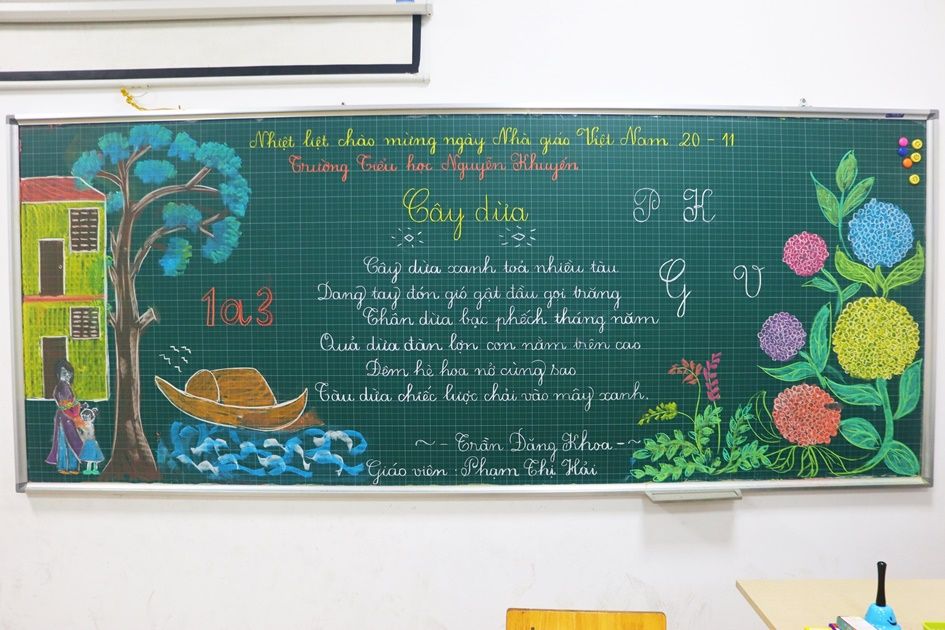 Nhiệt liệt chào mừng ngày Nhà giáo Việt Nam 20 - 11
Trường Tiểu học Nguyễn Khuyến
Cây dừa
P H
1a3
G V
Cây dừa xanh toả nhiều tàu
Dang tay đón gió gật đầu gọi trăng
Thân dừa bạc phếch tháng năm
Quả dừa đàn lợn con nằm trên cao
Đêm hè hoa nở cùng sao
Tàu dừa chiếc lược chải vào mây xanh.
~ - Trần Đăng Khoa - ~
Giáo viên : Phạm Thị Hải